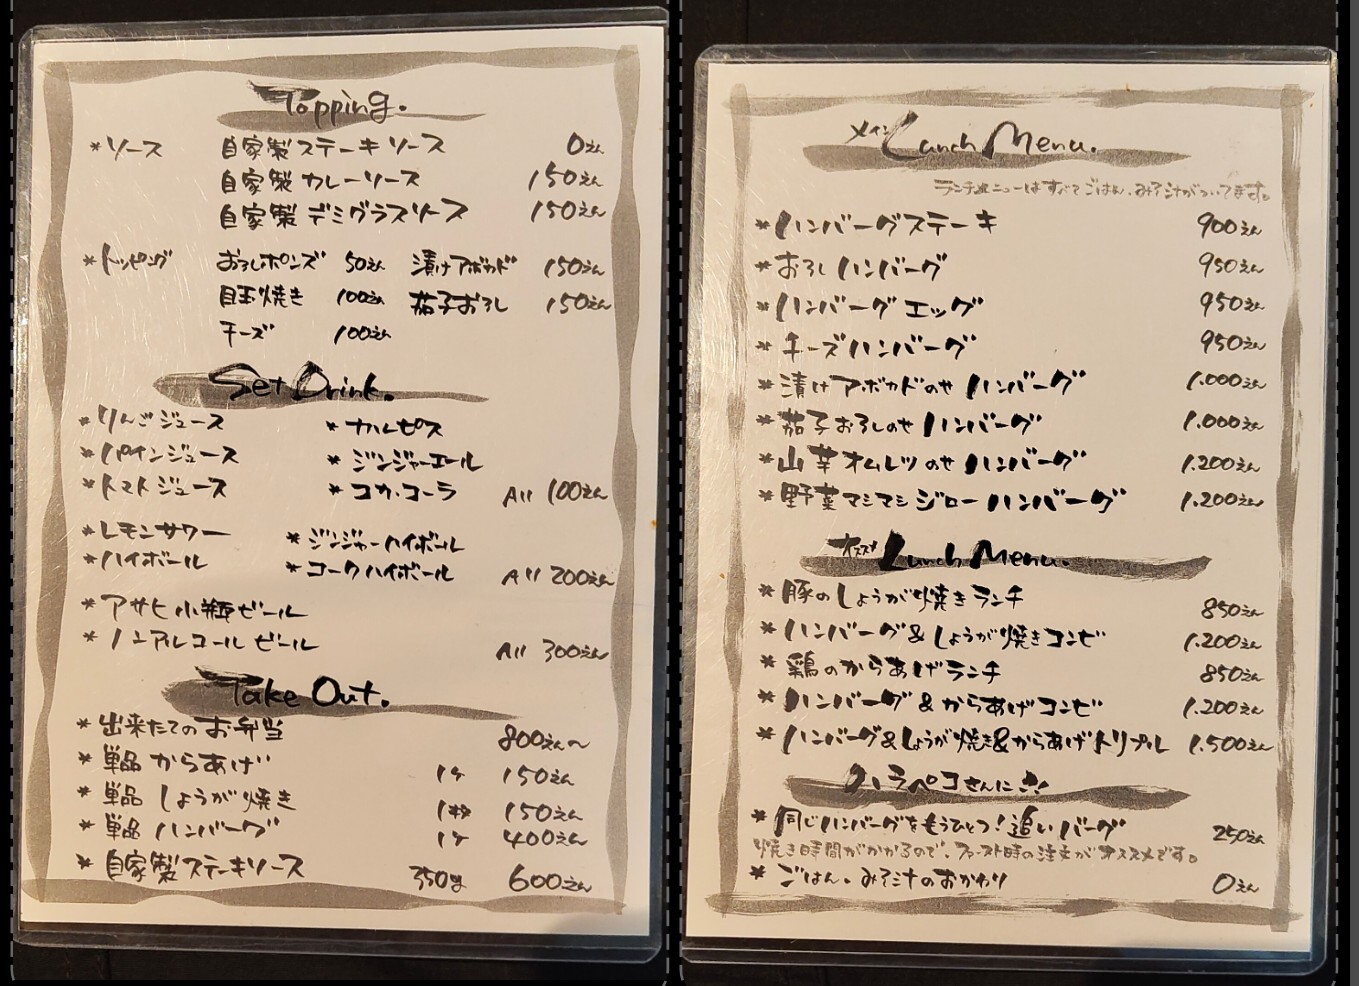 Topping.
*ソース 自家製ステーキソース 0えん
自家製カレーソース 150えん
自家製デミグラスソース 150えん
*トッピング おろしポンズ 50えん 漬けアボカド 150えん
目玉焼き 100えん 茄子おろし 150えん
チーズ 100えん
Set Drink.
*りんごジュース *カルピス
*パインジュース *ジンジャーエール
*トマトジュース *コカ・コーラ All 100えん
*レモンサワー *ジンジャーハイボール
*ハイボール *コークハイボール All 200えん
*アサヒ小瓶ビール
*ノンアルコールビール All 300えん
Take Out.
*出来たてのお弁当 800えん〜
*単品からあげ 1ケ 150えん
*単品しょうが焼き 1枚 150えん
*単品ハンバーグ 1ケ 400えん
*自家製ステーキソース 350g 600えん
メイン Lunch Menu.
ランチメニューはすべてごはん、みそ汁がついてます。
*ハンバーグステーキ 900えん
*おろしハンバーグ 950えん
*ハンバーグエッグ 950えん
*チーズハンバーグ 950えん
*漬けアボカドのせハンバーグ 1.000えん
*茄子おろしのせハンバーグ 1.000えん
*山芋オムレツのせハンバーグ 1.200えん
*野菜マシマシジローハンバーグ 1.200えん
オススメ Lunch Menu.
*豚のしょうが焼きランチ 850えん
*ハンバーグ&しょうが焼きコンビ 1.200えん
*鶏のからあげランチ 850えん
*ハンバーグ&からあげコンビ 1.200えん
*ハンバーグ&しょうが焼き&からあげトリプル 1.500えん
ハラペコさんに
*同じハンバーグをもうひとつ!追いバーグ 250えん
焼き時間がかかるので、ファースト時の注文がオススメです。
*ごはん、みそ汁のおかわり 0えん